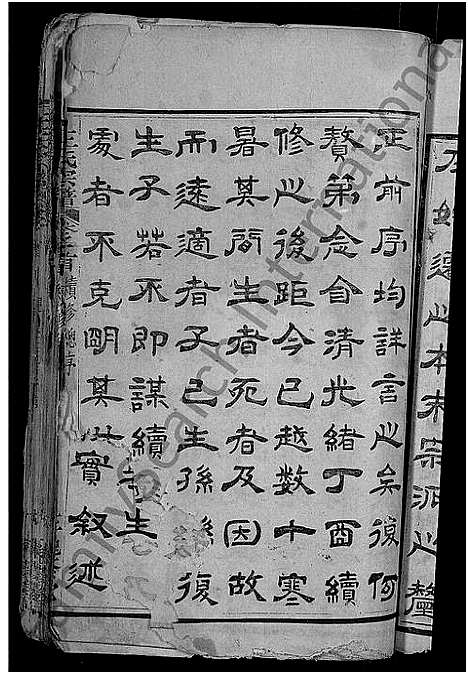 始遷之本末宗派之釐
正前序均詳言之矣復何
贅第念自清光緒丁酉續
修之後距今已越數十寒
暑其間生者死者及因故
而遠適者子已生孫復
生子若不即謀續生
處者不克明其世實叙述
王氏宗譜 卷之首 續修總序
Search International